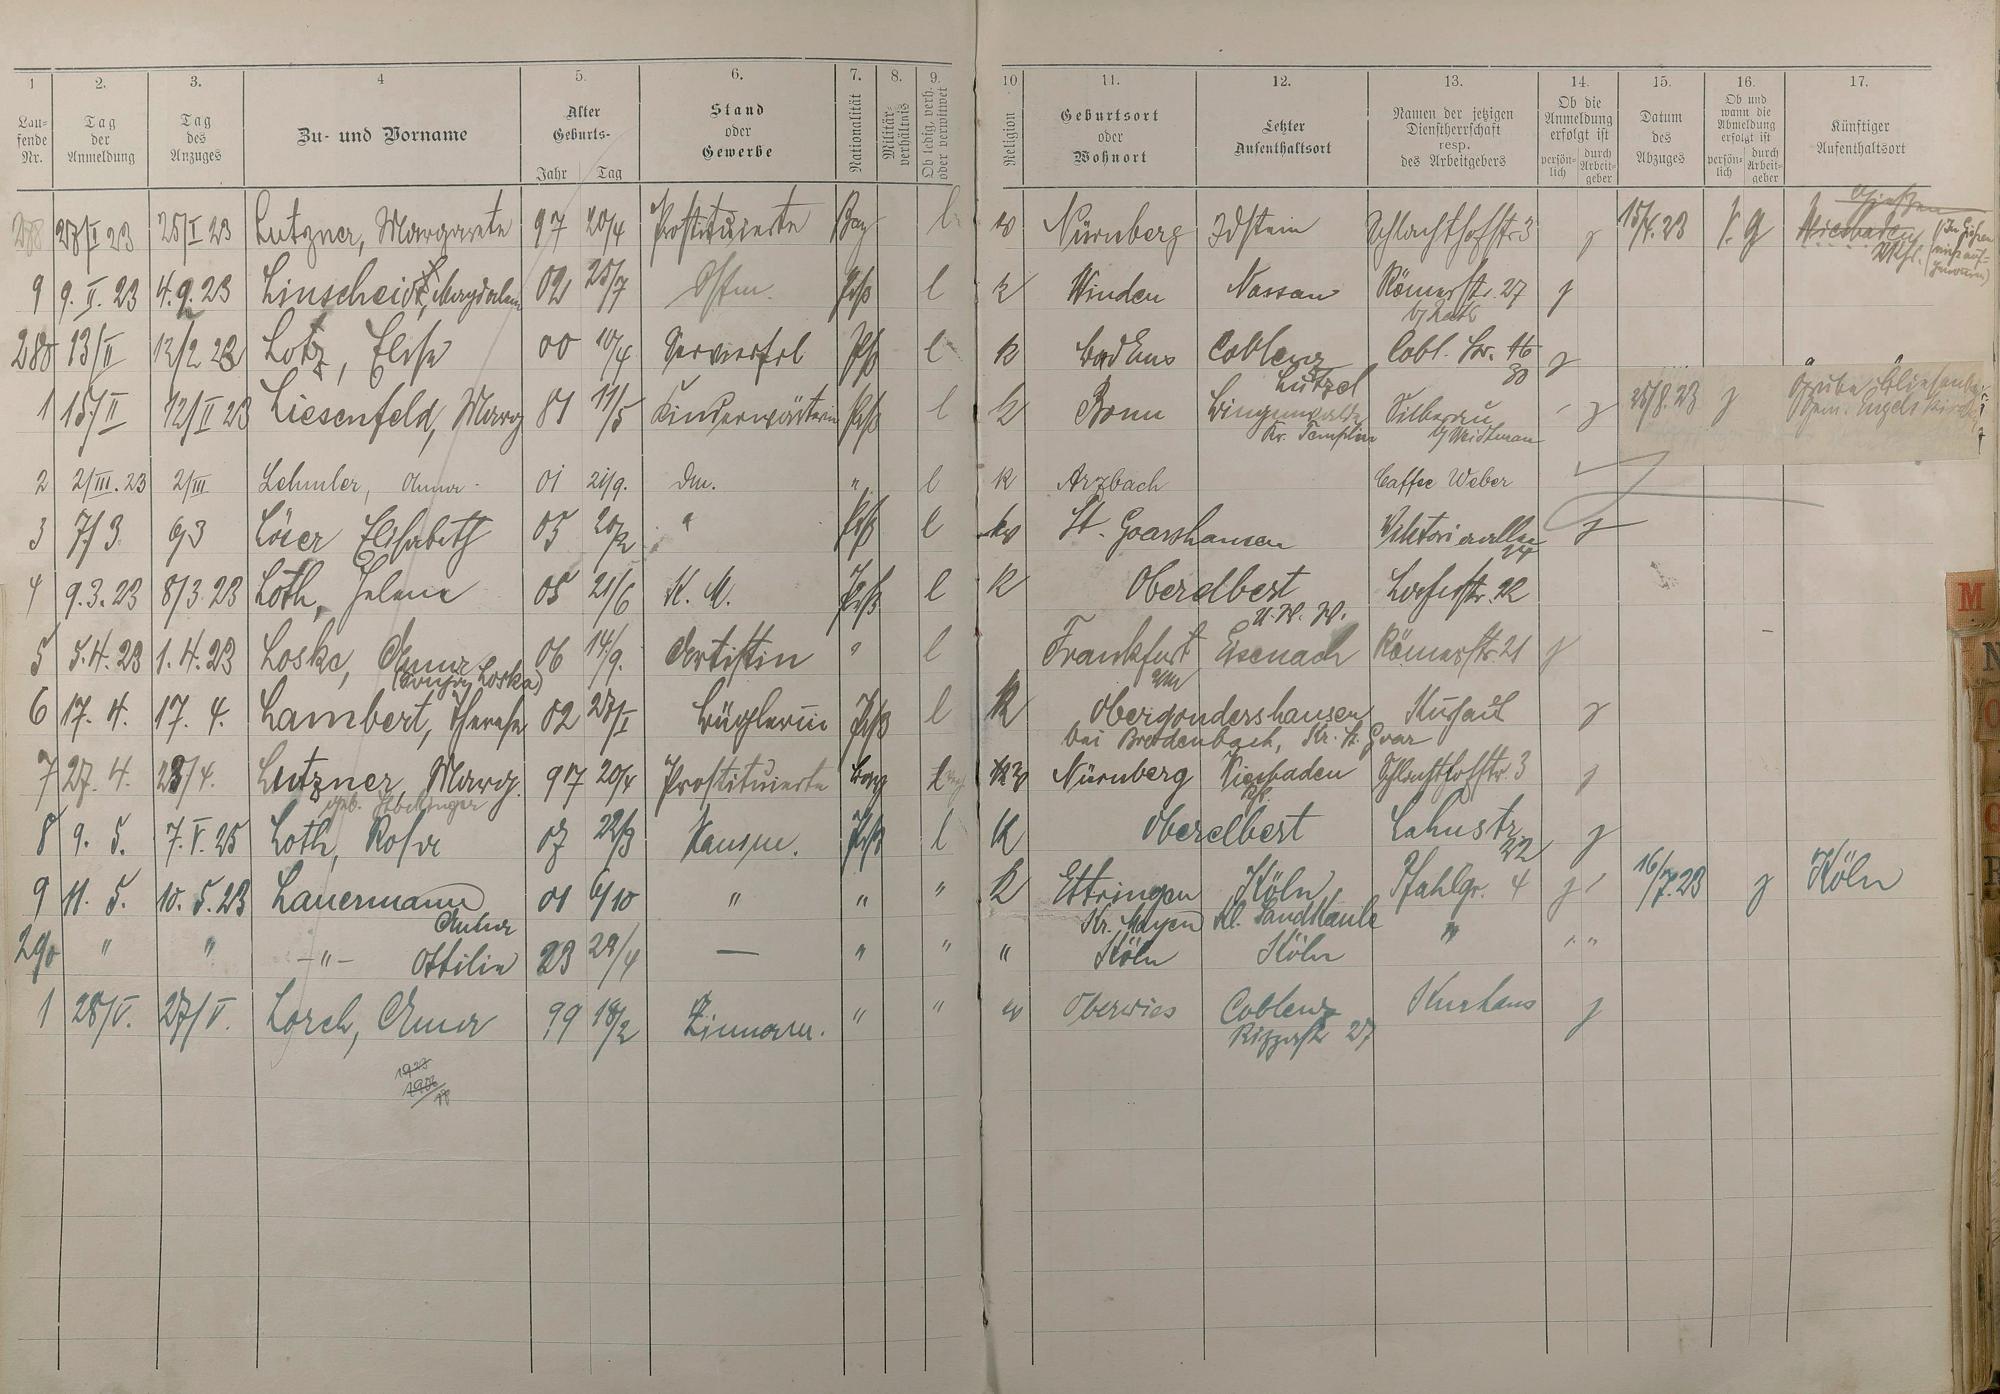 1 2. 3. 4 5. 6. 7. 8. 9. 10 11. 12. 13. 14. 15. 16. 17.
Lau-
fende
Nr.
Tag
der
Anmeldung
Tag
des
Anzuges
Zu- und Vorname
Alter
Geburts-
Jahr Tag
Stand
oder
Gewerbe
Nationalität
Militär-
verhältnis
Ob ledig, verh.
oder verwitwet
Religion
Geburtsort
oder
Wohnort
Letzter
Aufenthaltsort
Namen der jetzigen
Dienstherrschaft
resp.
des Arbeitgebers
Ob die
Anmeldung
erfolgt ist
persön-
lich
durch
Arbeit-
geber
Datum
des
Abzuges
Ob und
wann die
Abmeldung
erfolgt ist
persön-
lich
durch
Arbeit-
geber
Künftiger
Aufenthaltsort
Giessen
278 27/I 23 25/I 23 Lutzner, Margarete 97 20/4 Prostituierte Bay l Nürnberg Idstein Schlachthofstr 3 15/4.23 Wiesbaden
9 9. II. 23 4.2.23 Linscheidt, Magdalena 02 25/7 Prß l k Winden Nassau Römerstr. 27
280 13/II 12/2 23 Lotz, Elise 00 10/4 Servierfrl Prß l k Bad Ems Coblenz Cobl. Str. 16
Lützel 80
1 15/II 12/II 23 Liesenfeld, Marg 81 11/5 Kinderwärterin Prß l k Bonn Silberau 25/8.23
Kr. Templin
2 2/III.23 2/III Lehmler, Anna 01 21/9. Dm. " l k Arzbach Caffee Weber
3 7/3 9/3 Löser Elisabeth 05 20/2 " Prß l St. Goarshausen Viktoriaallee
4 9.3.23 8/3.23 Loth, Helene 05 21/6 K. M. Prß l k Oberelbert
U. W. W.
5 5.4.23 1.4.23 Loske, Anna 06 14/9. Artistin " l Frankfurt Eisenach Römerstr. 21
6 17. 4. 17. 4. Lambert, Therese 02 27/I Büglerin Prß l k Obergondershausen Kursaal
bei Brodenbach, Kr. St. Goar
7 27. 4. 23/4. Lutzner, Marg. 97 20/4 Prostituierte Bay Nürnberg Wiesbaden Schlachthofstr. 3
8 9. 5. 7.V.23 Loth, Rosa 07 22/3 Hausm. Prß l k Oberelbert Lahnstr
22
9 11. 5. 10. 5. 23 Lauermann 01 6/10 " " " k Ettringen Köln Pfahlgr. 4 16/7.23 Köln
Anna Kr. Mayen Kl. Sandkaule
290 " " -"- Ottilie 23 23/4 — " " " Köln Köln " " "
1 28/V. 27/V. Lorch, Anna 99 18/2 Zimmerm. " " ev Oberwies Coblenz Kurhaus
Rizzastr 27
1923
M